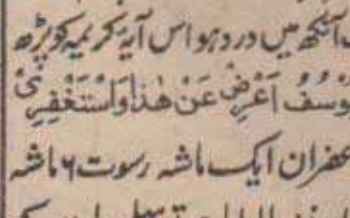 آنکھ میں درد ہو اس آیۂ کریمہ کو پڑھ
یُوسُفُ اَعْرِضْ عَنْ هٰذَا وَاسْتَغْفِرِیْ
عفران ایک ماشہ رسوت ۶ ماشہ